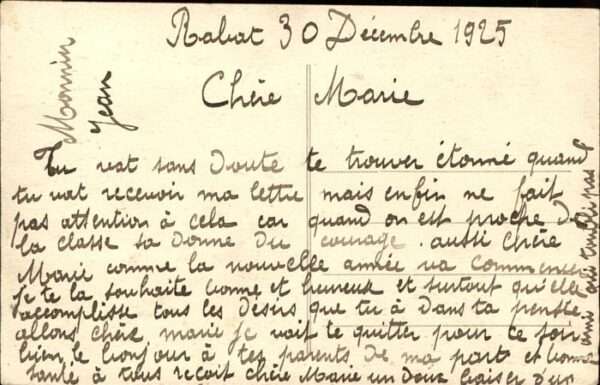 Rabat 30 Décembre 1925
Monnin
Jean
Chère Marie
Tu vat sans doute te trouver étonné quand
tu vat recevoir ma lettre mais enfin ne fait
pas attention à cela car quand on est proche de
la classe sa donne du courage. aussi chère
Marie comme la nouvelle année va commencer
je te la souhaite bonne et heureux et surtout qu'elle
accomplisse tous les désirs que tu à dans ta pensée
allons chère marie je vait te quitter pour ce soir
bien le bonjour à tes parents de ma part et bonne
santé à tous reçoit chère Marie un doux baiser d'un
ami qui t'oubli pas